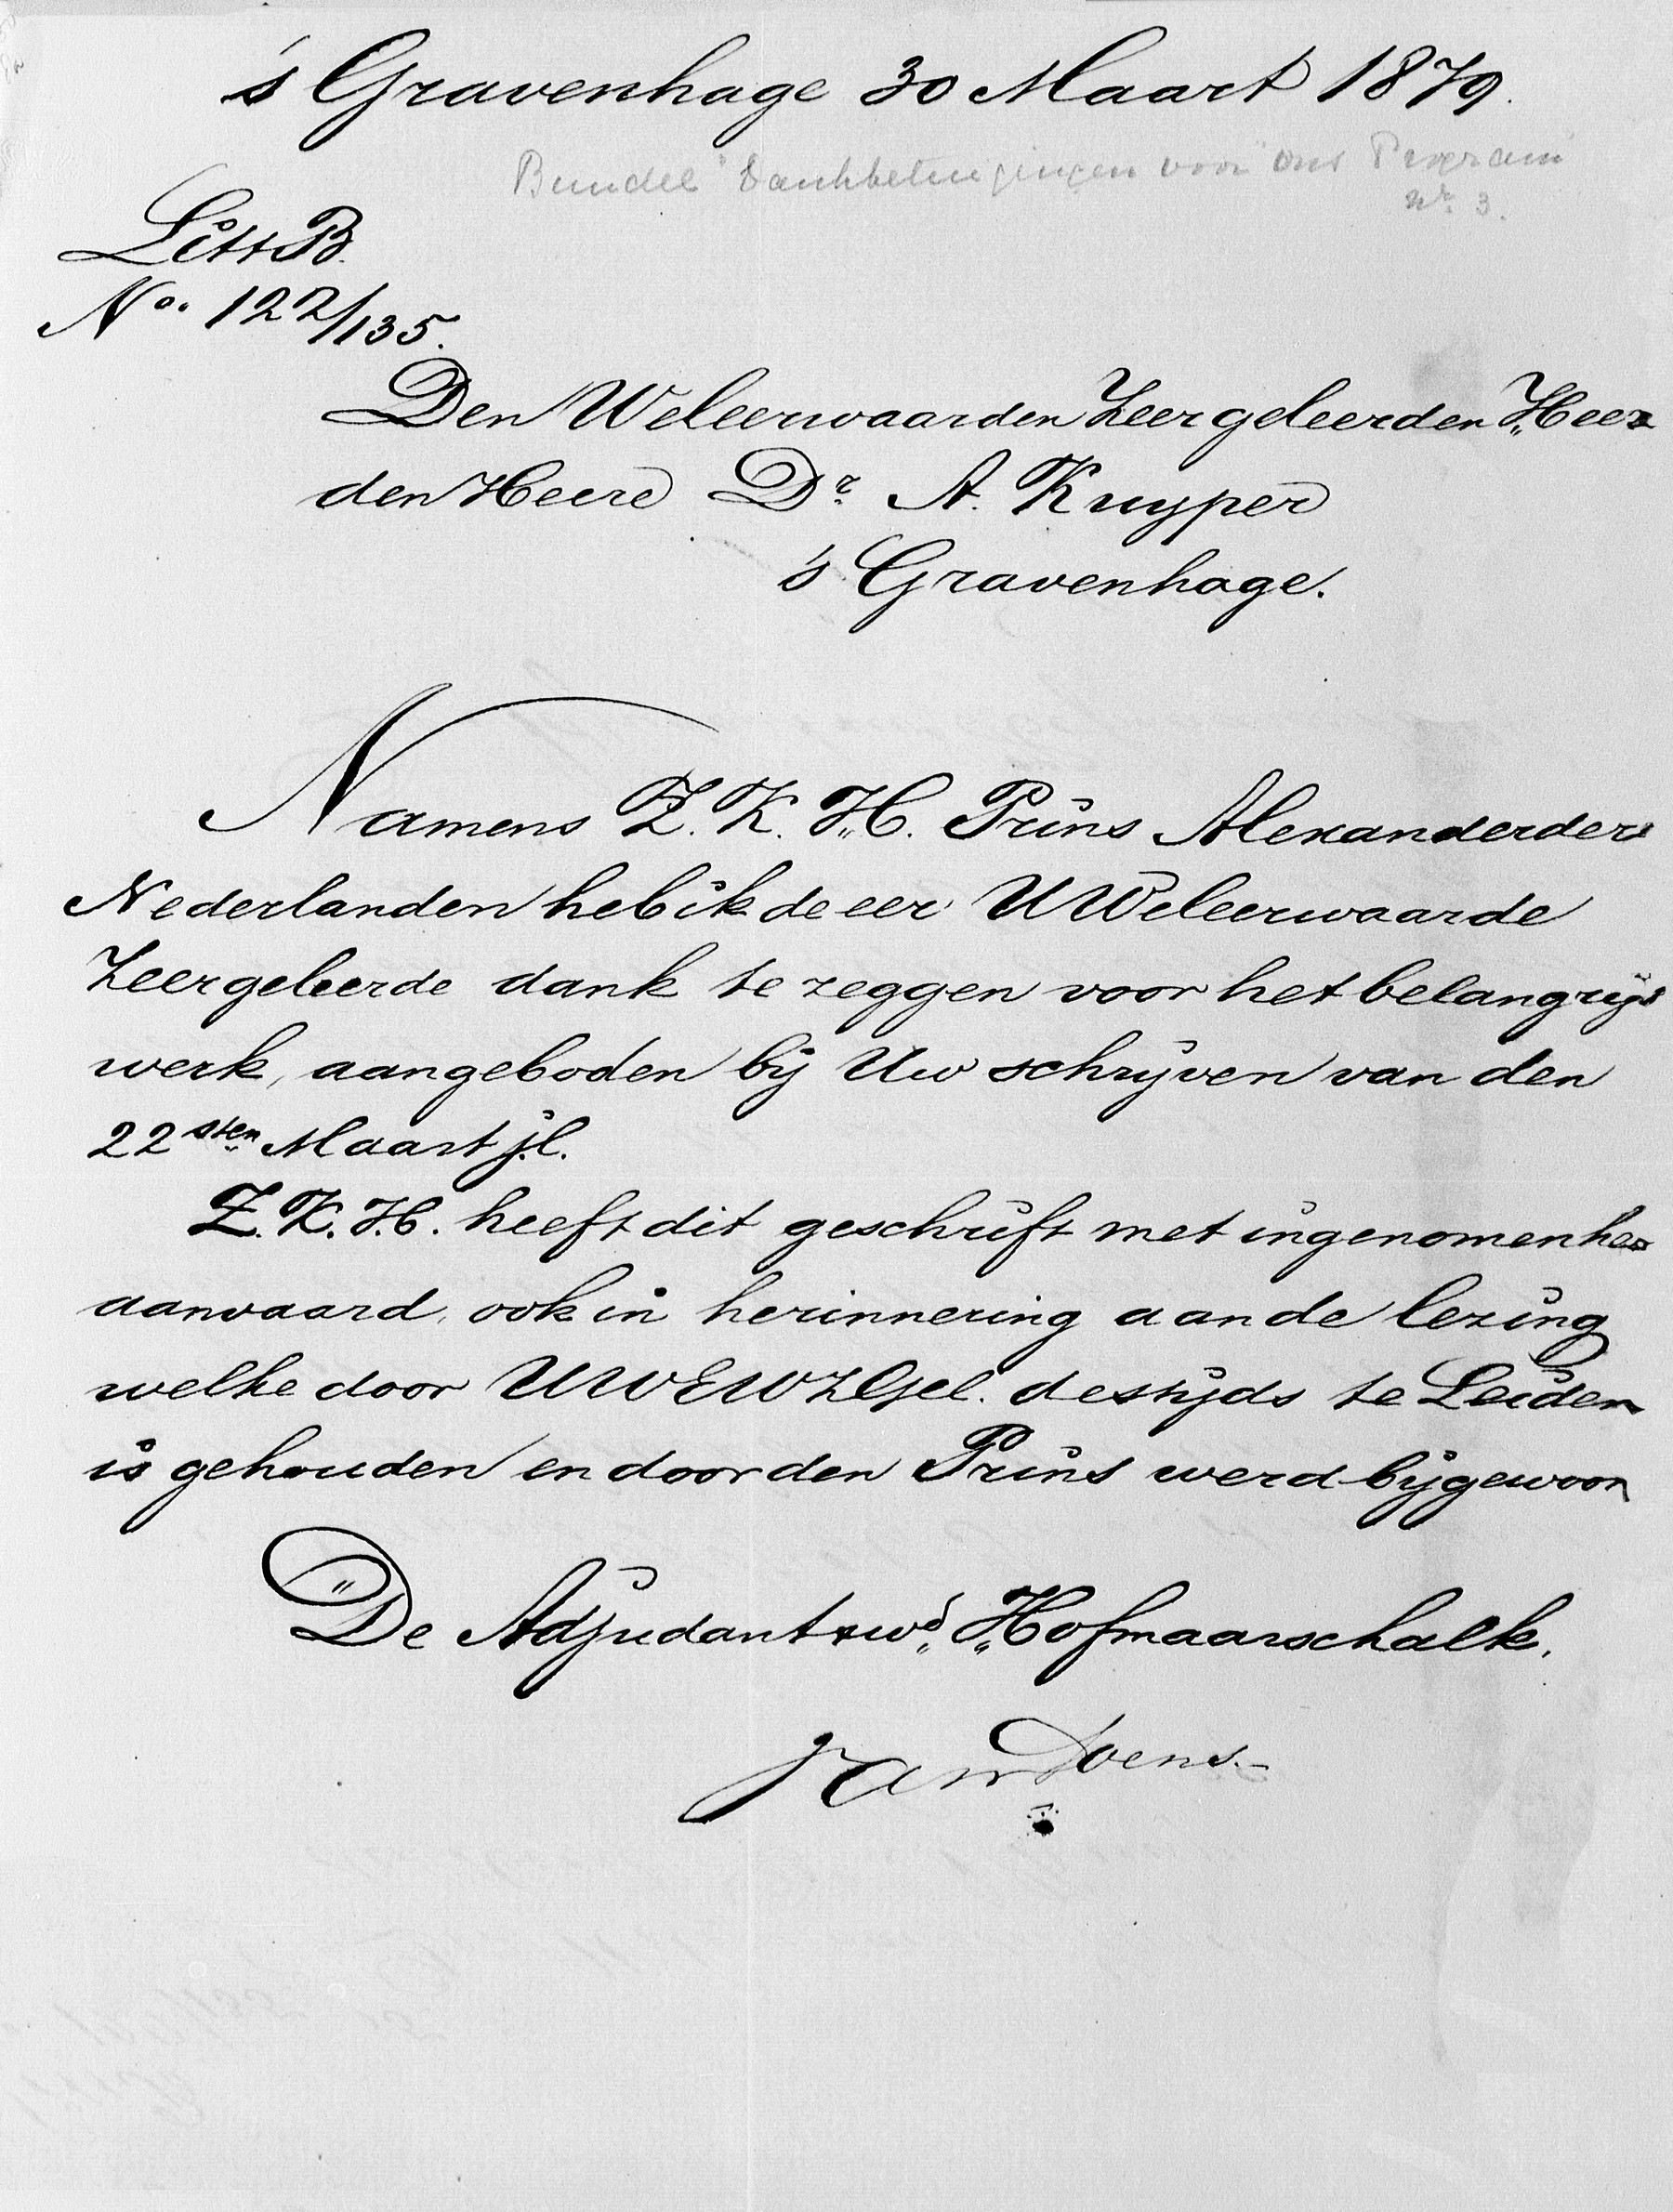 's Gravenhage 30 Maart 1879.
Bundel "Dankbetuigingen voor "Ons Program"
Nr. 3.
Litt B.
No. 122/135.
Den Weleerwaarden Zeergeleerden Heer
den Heere Dr. A. Kuyper
's Gravenhage.
Namens Z. K. H. Prins Alexander der
Nederlanden heb ik de eer UWeleerwaarde
Zeergeleerde dank te zeggen voor het belangrijk
werk, aangeboden bij Uw schrijven van den
22sten Maart j.l.
Z. K. H. heeft dit geschrift met ingenomenhe
aanvaard, ook in herinnering aan de lezing
welke door UWEWZGel. destijds te Leiden
is gehouden en door den Prins werd bijgewoon
De Adjudant wd. Hofmaarschalk.